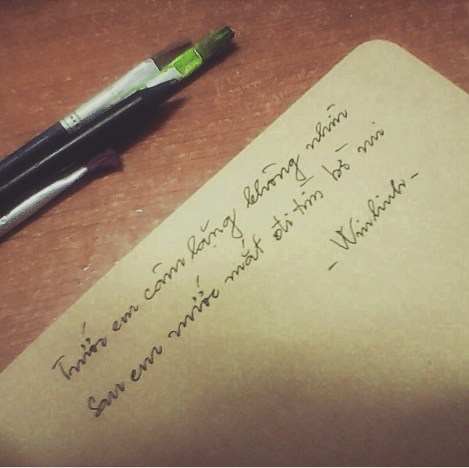 Trước em câm lặng không nhìn
Sau em nước mắt đi tìm bờ mi
- Winlinh -